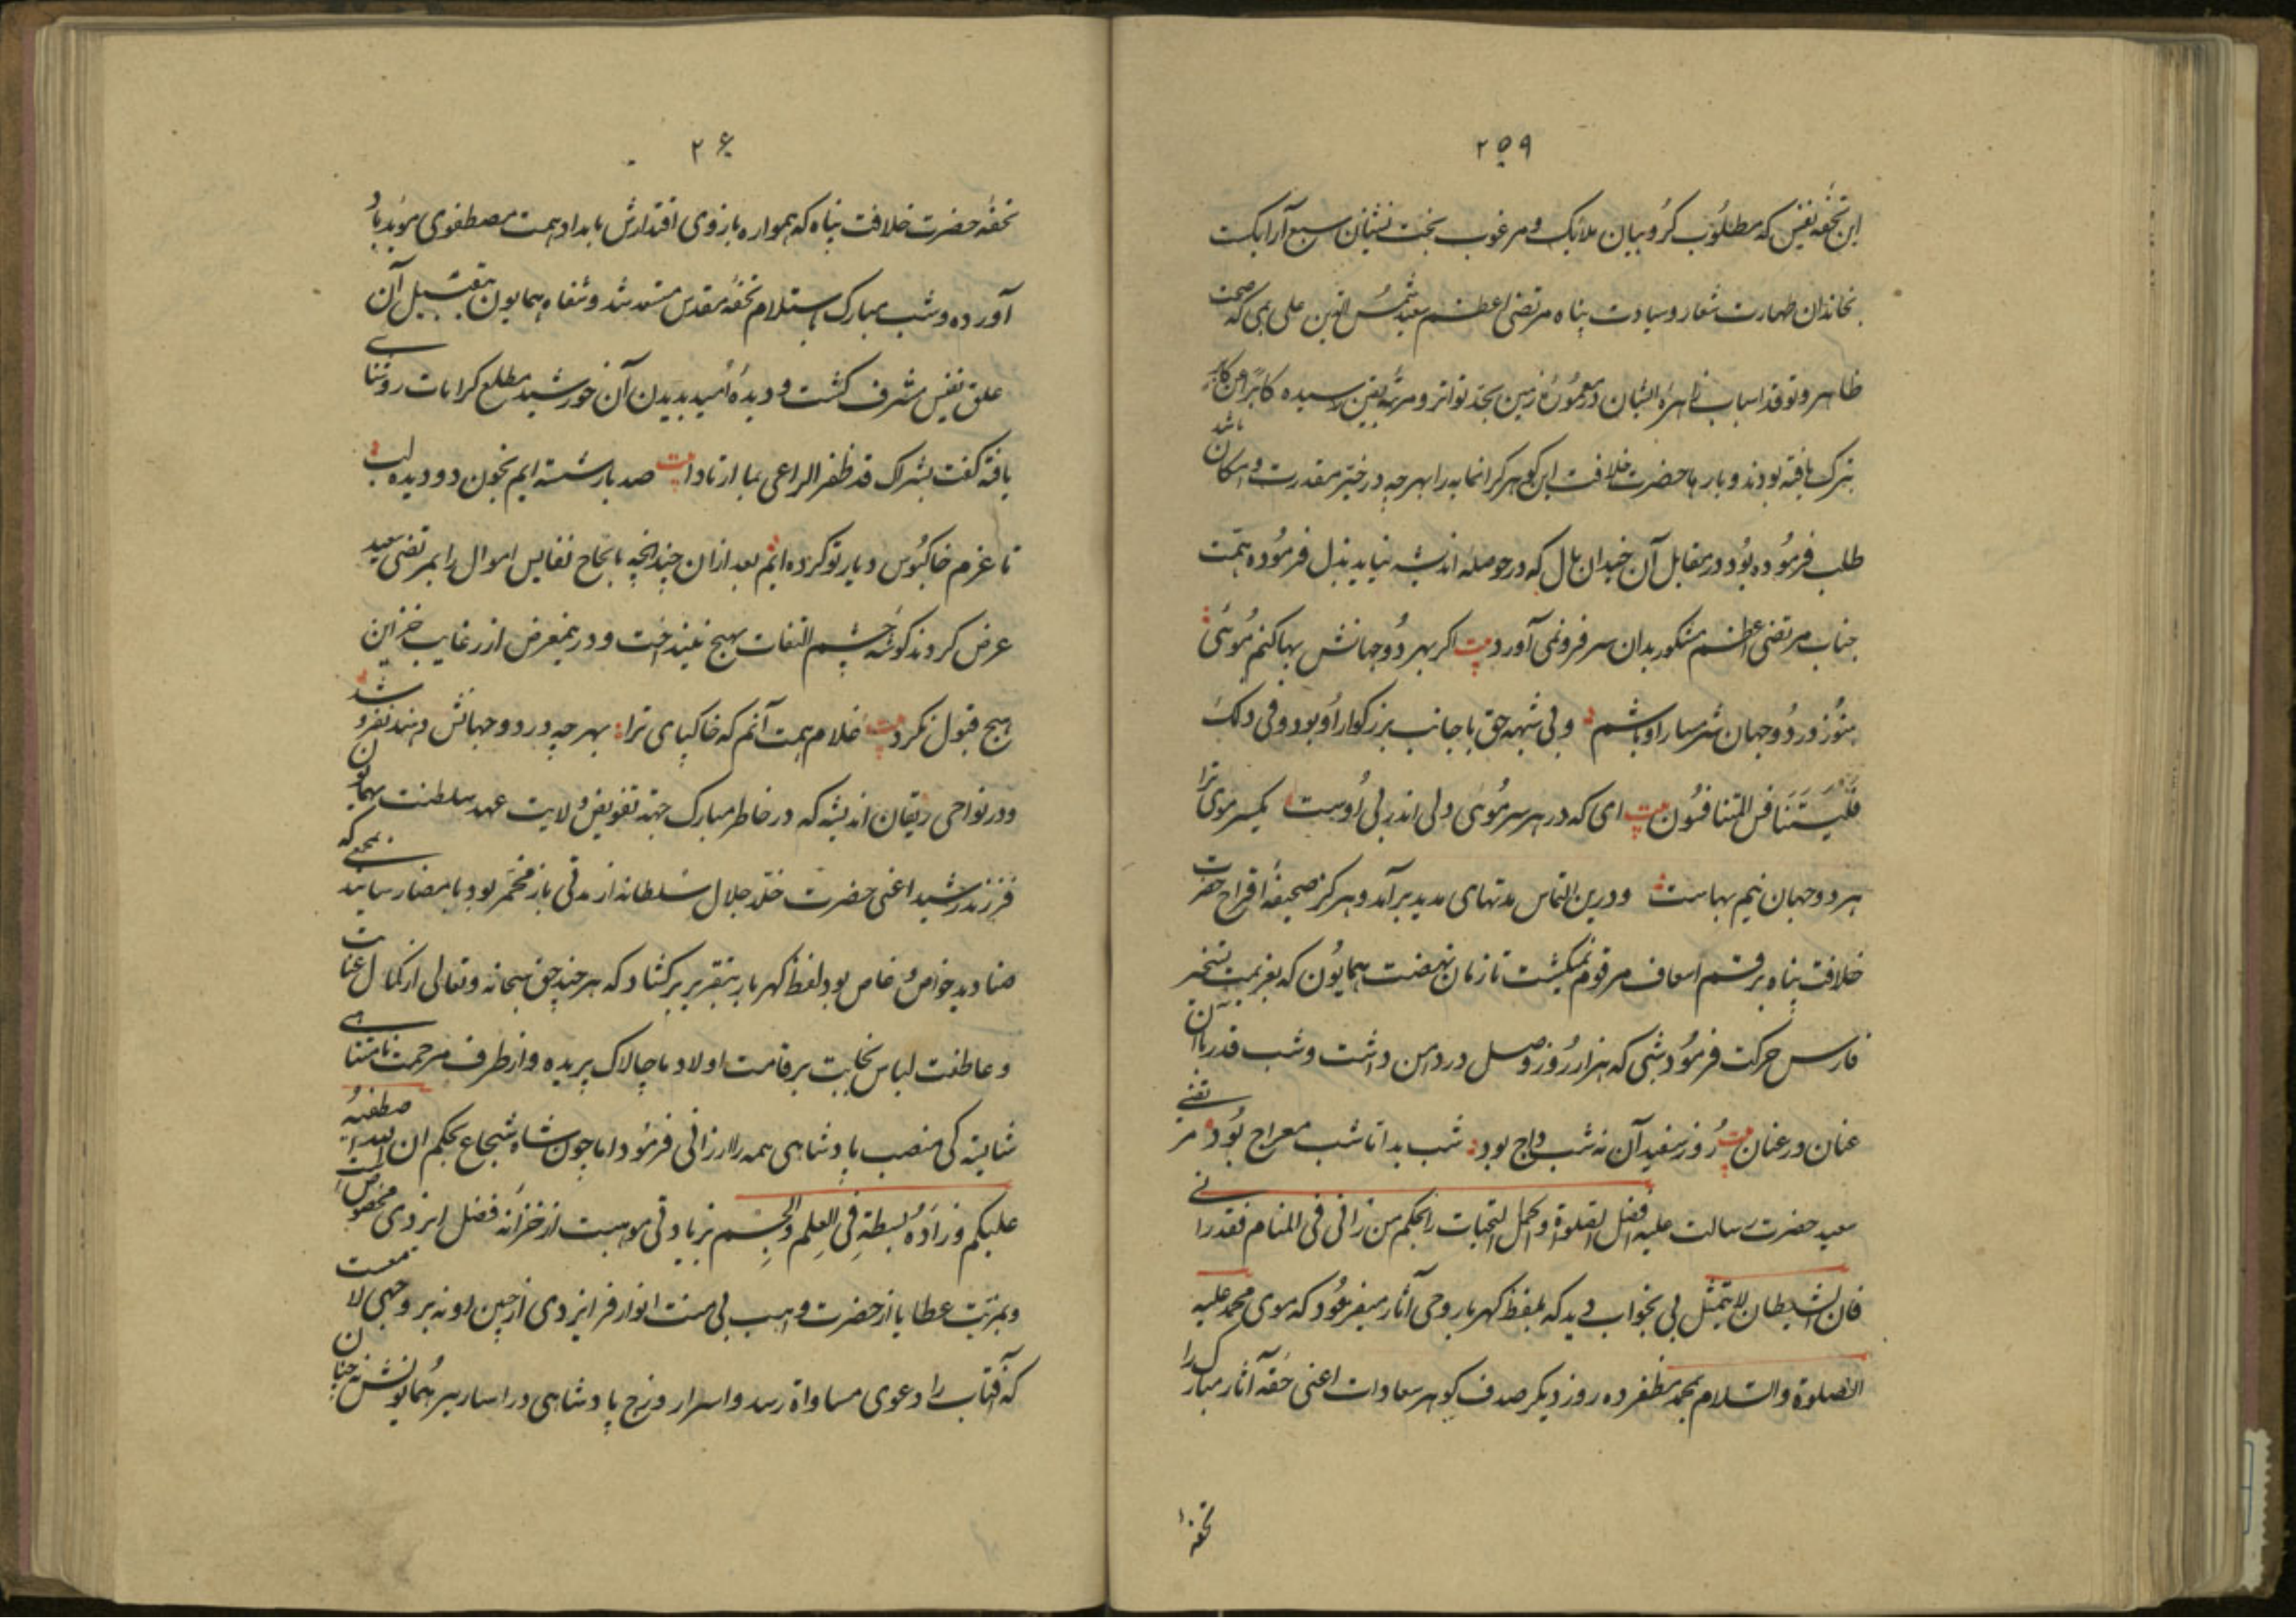 ۲۵۹
این تحفه نفیس که مطلوب کروبیان ملائک و مرغوب بخت نشینان سبع آرایکست
بخاندان طهارت شعار و سیادت پناه مرتضی اعظم سعید شمس الدین علی بمی که صحت
ظاهر و توقد اسباب زاهرة الشان در معموره زمین بحد تواتر و مرتبه یقین رسیده کابرا عن کابر
بترک یافته بودند و بارها حضرت خلافت این گوهر گرانمایه را بهر چه در حیز مقدرت و امکان باشد
طلب فرموده بود و در مقابل آن چندان مال که در حوصله اندیشه نیاید بذل فرموده همت
جناب مرتضی اعظم مشکور بدان سر فرو نمی آورد بیت اکر بهر دو جهانش بها کنم موئی
هنوز در دو جهان شرمسار او باشم ولی شبهه حق با جانب بزرگوار او بود و فی ذلک
فلیتنافس المتنافسون بیت ای که در هر سر موئی دلی اندر بی اوست یکسر موی ترا
هر دو جهان نیم بهاست و درین التماس مدتهای مدید بر آمد و هرکز صحیفه اقراح حضرت
خلافت پناه برقم اسعاف مرقوم نمیکشت تا زمان نهضت همایون که بعزیمت تسخیر
فارس حرکت فرمود شبی که هزار روز وصل در دامن داشت و شب قدر با آن
عنان در عنان بیت روز سفید آن نه شب داج بود شب بد اما شب معراج بود مرتضی
سعید حضرت رسالت علیه افضل الصلوة و اکمل التحیات را بحکم من رانی فی المنام فقد رانی
فان الشیطان لا یتمثل بی بخواب دید که بلفظ کهربار وحی آثار میفرمود که موی محمد علیه
الصلوة والسلام بمحمد مظفر ده روز دیکر صدف کوهر سعادات اعنی حقه آثار مبارک را
تحفه
۲۶۰
تحفه حضرت خلافت پناه که همواره بازوی اقتدارش بامداد همت مصطفوی موید باد
آورده و شب مبارک باستلام تحفه مقدس مستعد شد و شفاه همایون بتقبیل آن
علق نفیس مشرف کشت و دیده امید بدیدن آن خورشید مطلع کرامات روشنائی
یافته کفت بشراک قد ظفر الراعی بما ارتادا بیت صد بار شسته ایم بخون دو دیده لب
تا عزم خاکبوس دیار تو کرده ایم بعد از آن چندانچه بالحاح نفایس اموال را بمرتضی سعید
عرض کردند کوشه چشم التفات بهیچ نینداخت و در معرض از رغایب خزاین
هیچ قبول نکرد بیت غلام همت آنم که خاکپای ترا بهر چه در دو جهانش دهند نفروشد
و در نواحی ریقان اندیشه که در خاطر مبارک جهة تفویض ولایت عهد سلطنت همایون
فرزند رشید اعنی حضرت خلد جلال سلطانه از مدتی باز مخمر بود بامضا رسانید بمجمعی که
صنادید خواص و خاص بود لفظ کهربار بتقریر برکشاد که هر چند حق سبحانه و تعالی از کمال عنایت
و عاطفت لباس نجابت بر قامت اولاد ما چالاک بریده و از طرف مرحمت نامتناهی
شایستگی منصب پادشاهی همه را ارزانی فرمود اما چون شاه شجاع بحکم ان الله اصطفیه
علیکم و زاده بسطة فی العلم والجسم بزیادتی موهبت از خزانه فضل ایزدی مخصوص است
و بمزیت عطایا از حضرت واهب بی منت انوار فر ایزدی از جبین او نه بر وجهی لامعست
که آفتاب را دعوی مساواة رسد و اسرار ورج پادشاهی در اساریر همایونش نه چنان